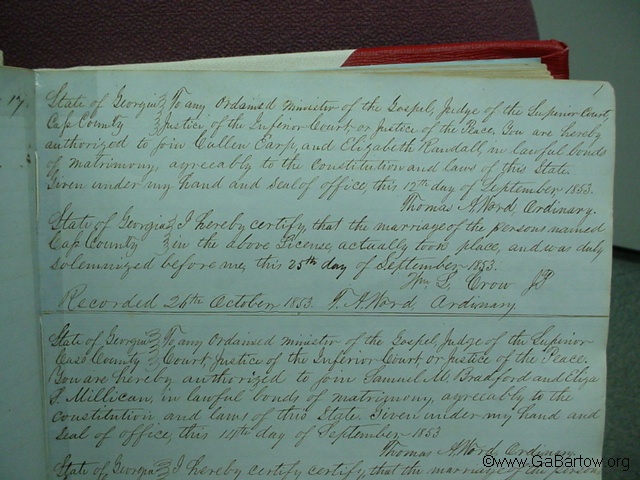 1
17.
State of Georgia } To any Ordained minister of the Gospel, Judge of the Superior Court,
Cass County } Justice of the Inferior Court or Justice of the Peace. You are hereby
authorized to join Cullen Earp, and Elizabeth Randall, in lawful bonds
of matrimony, agreeably to the constitution and laws of this State.
Given under my hand and seal of office, this 12th day of September 1853.
Thomas A. Word, Ordinary.
State of Georgia } I hereby certify, that the marriage of the persons named
Cass County } in the above License, actually took place, and was duly
solemnized before me, this 25th day of September 1853.
Wm S. Crow JP
Recorded 26th October 1853. T. A. Word, Ordinary
State of Georgia } To any Ordained minister of the Gospel, Judge of the Superior
Cass County } Court, Justice of the Inferior Court, or Justice of the Peace.
You are hereby authorized to join Samuel M. Bradford and Eliza
J. Millican, in lawful bonds of matrimony, agreeably to the
constitution and laws of this State. Given under my hand and
seal of office, this 14th day of September 1853
Thomas A. Word, Ordinary.
State of Georgia } I hereby certify certify, that the marriage of the persons
©www.GaBartow.org